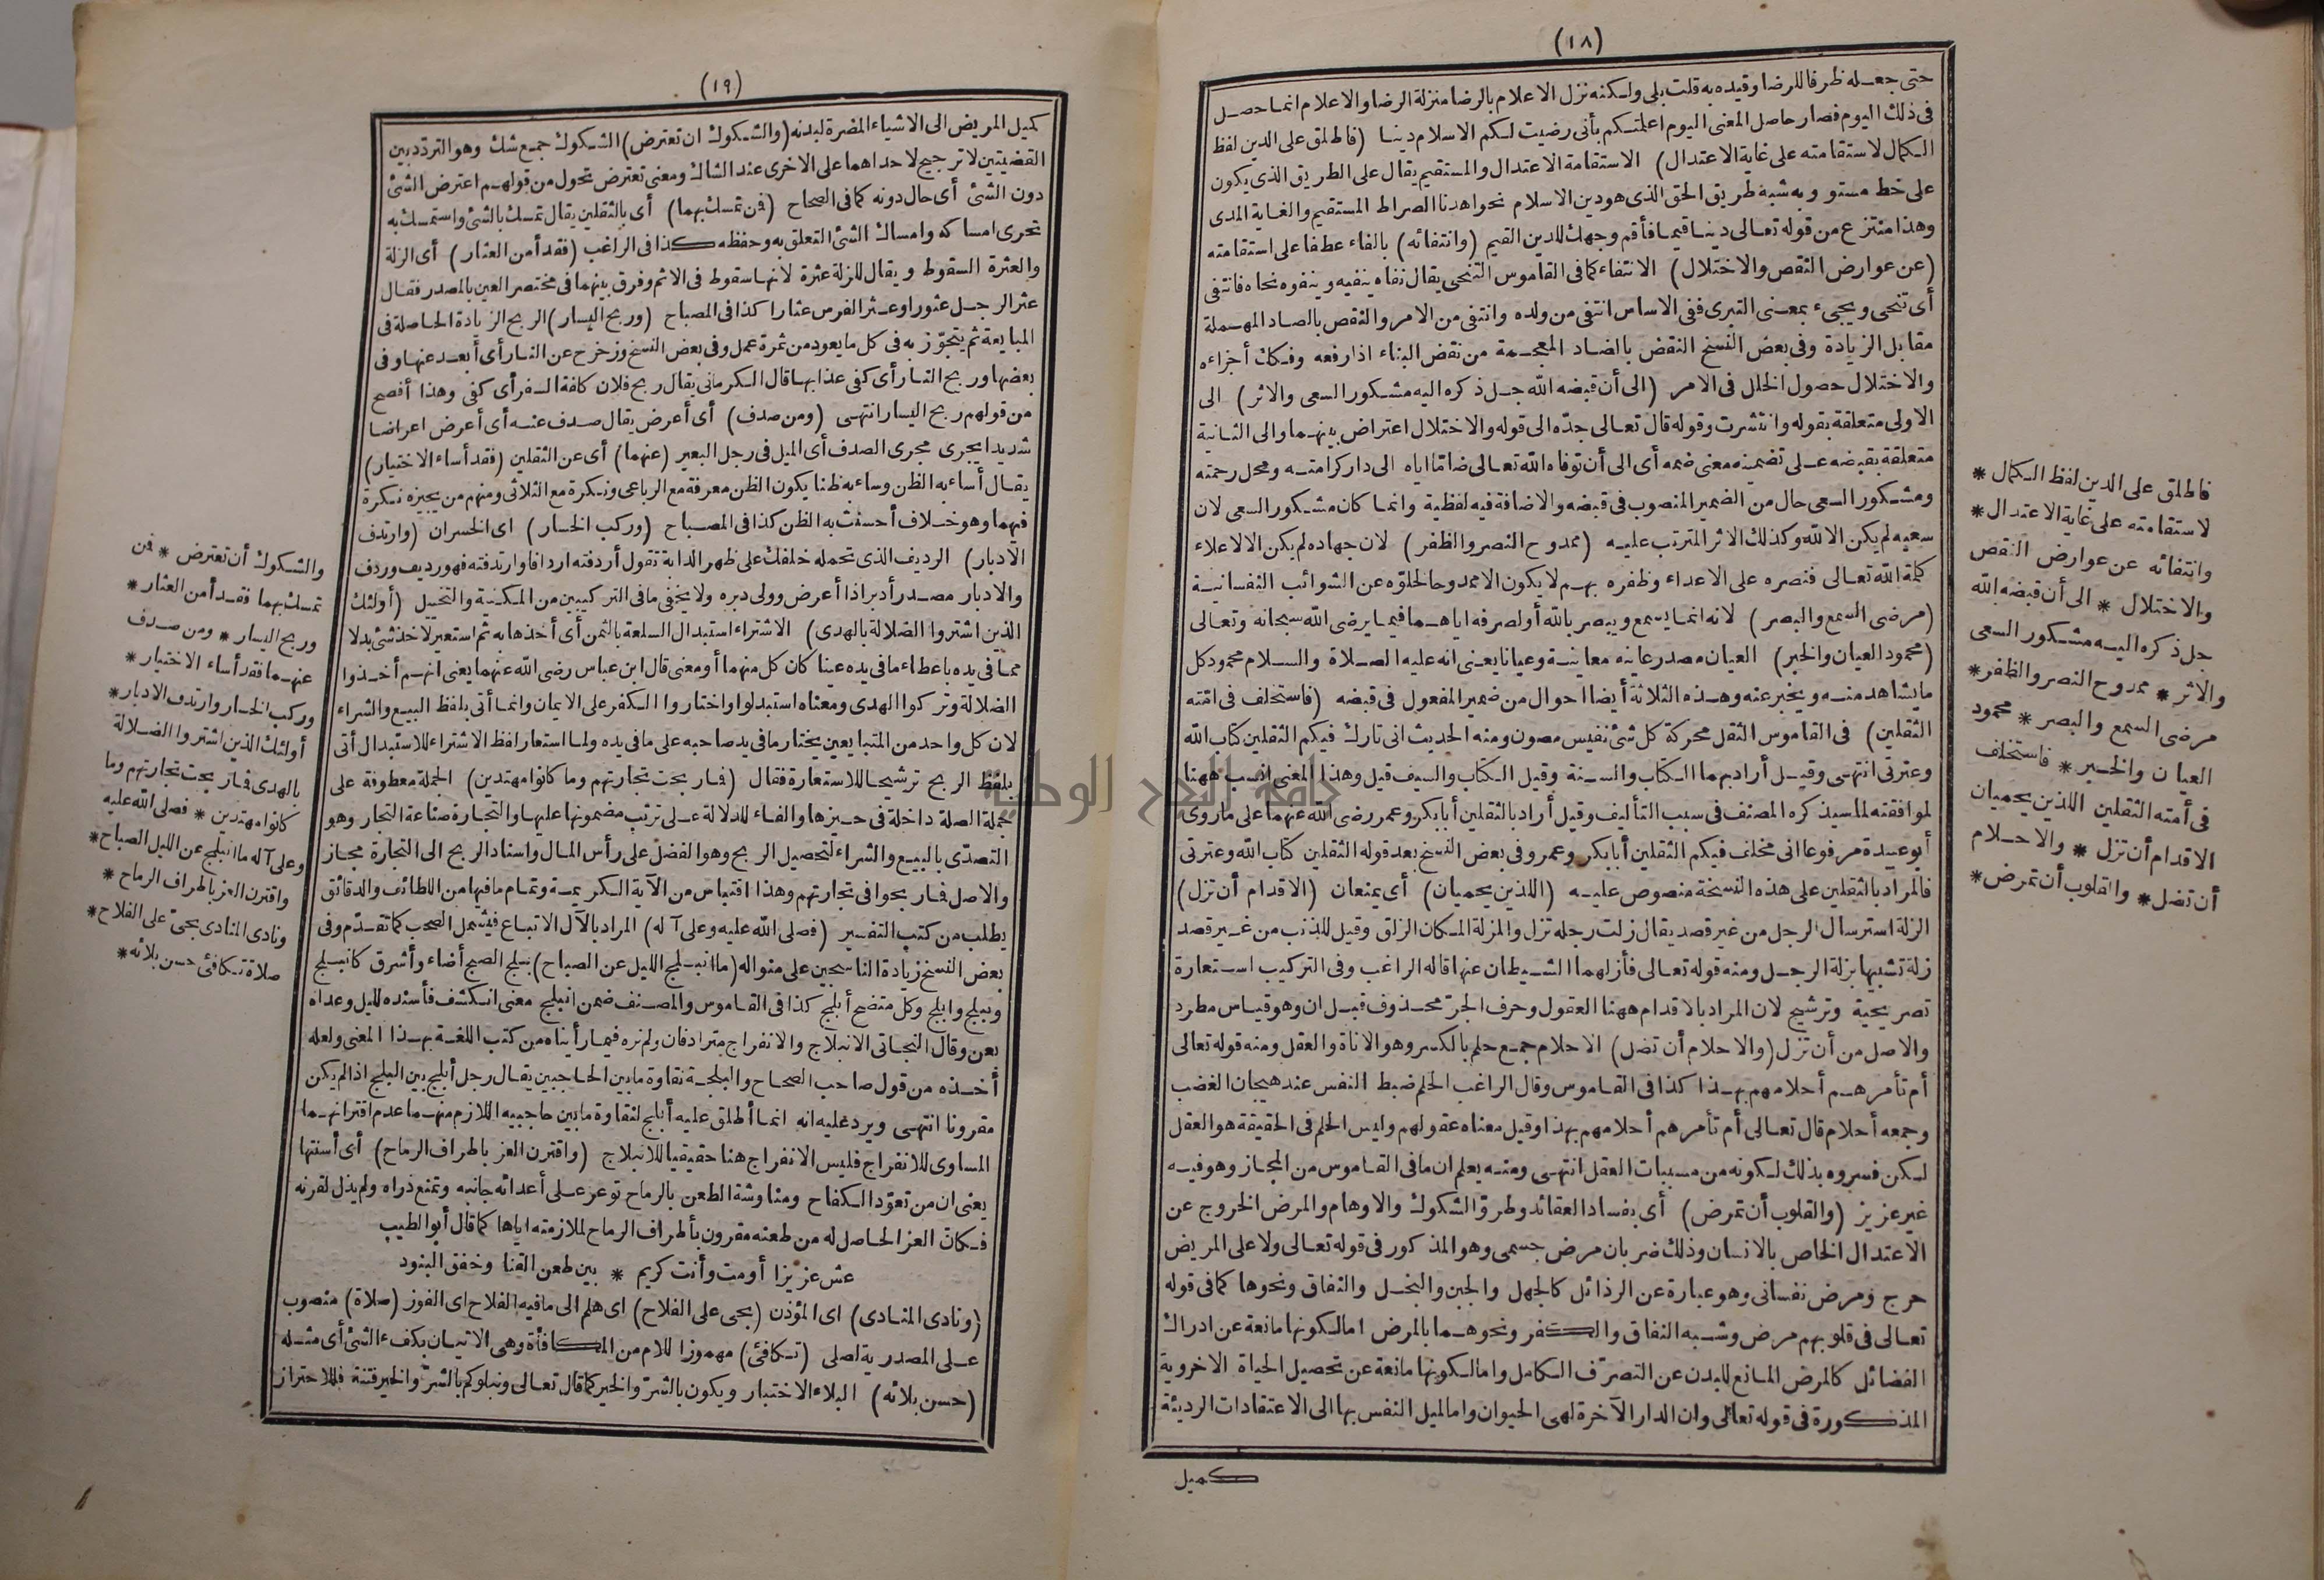 (١٨)
حتى جعله ظرفا للرضا وقيده به قلت بلى ولكنه نزل الاعلام بالرضا منزلة الرضا والاعلام انما حصل
فى ذلك اليوم فصار حاصل المعنى اليوم اعلمتكم بأنى رضيت لكم الاسلام دينا (فاطلق على الدين لفظ
الكمال لاستقامته على غاية الاعتدال) الاستقامة الاعتدال والمستقيم يقال على الطريق الذى يكون
على خط مستو وبه شبه طريق الحق الذى هو دين الاسلام نحو اهدنا الصراط المستقيم والغاية المدى
وهذا منتزع من قوله تعالى دينا قيما فأقم وجهك للدين القيم (وانتفائه) بالفاء عطفا على استقامته
(عن عوارض النقص والاختلال) الانتفاء كما فى القاموس التنحى يقال نفاه ينفيه وينفوه نحاه فانتفى
أى تنحى ويجىء بمعنى التبرى ففى الاساس انتفى من ولده وانتفى من الامر والنقص بالصاد المهملة
مقابل الزيادة وفى بعض النسخ النقض بالضاد المعجمة من نقض البناء اذا رفعه وفكك أجزاءه
والاختلال حصول الخلل فى الامر (الى أن قبضه الله جل ذكره اليه مشكور السعى والاثر) الى
الاولى متعلقة بقوله وانتشرت وقوله قال تعالى جده الى قوله والاختلال اعتراض بينهما والى الثانية
متعلقة بقبضه على تضمينه معنى ضمه أى الى أن توفاه الله تعالى ضاما اياه الى دار كرامته ومحل رحمته
ومشكور السعى حال من الضمير المنصوب فى قبضه والاضافة فيه لفظية وانما كان مشكور السعى لان
سعيه لم يكن الا لله وكذلك الاثر المترتب عليه (ممدوح النصر والظفر) لان جهاده لم يكن الا لاعلاء
كلمة الله تعالى فنصره على الاعداء وظفره بهم لا يكون الا ممدوحا لخلوه عن الشوائب النفسانية
(مرضى السمع والبصر) لانه انما يسمع ويبصر بالله أو لصرفه اياهما فيما يرضى الله سبحانه وتعالى
(محمود العيان والخبر) العيان مصدر عاينه معاينة وعيانا يعنى انه عليه الصلاة والسلام محمود كل
ما يشاهد منه ويخبر عنه وهذه الثلاثة أيضا احوال من ضمير المفعول فى قبضه (فاستخلف فى امته
الثقلين) فى القاموس الثقل محركة كل شئ نفيس مصون ومنه الحديث انى تارك فيكم الثقلين كتاب الله
وعترتى انتهى وقيل أراد بهما الكتاب والسنة وقيل الكتاب والسيف قيل وهذا المعنى انسب ههنا
لموافقته لما سيذكره المصنف فى سبب التأليف وقيل أراد بالثقلين أبا بكر وعمر رضى الله عنهما على ما روى
أبو عبيدة مرفوعا انى مخلف فيكم الثقلين أبا بكر وعمر وفى بعض النسخ بعد قوله الثقلين كتاب الله وعترتى
فالمراد بالثقلين على هذه النسخة منصوص عليه (اللذين يحميان) أى يمنعان (الاقدام أن تزل)
الزلة استرسال الرجل من غير قصد يقال زلت رجله تزل والمزلة المكان الزلق وقيل للذنب من غير قصد
زلة تشبيها بزلة الرجل ومنه قوله تعالى فأزلهما الشيطان عنها قاله الراغب وفى التركيب استعارة
تصريحية وترشيح لان المراد بالاقدام ههنا العقول وحرف الجر محذوف قبل ان وهو قياس مطرد
والاصل من أن تزل (والاحلام أن تضل) الاحلام جمع حلم بالكسر وهو الاناة والعقل ومنه قوله تعالى
أم تأمرهم أحلامهم بهذا كذا فى القاموس وقال الراغب الحلم ضبط النفس عند هيجان الغضب
وجمعه أحلام قال تعالى أم تأمرهم أحلامهم بهذا وقيل معناه عقولهم وليس الحلم فى الحقيقة هو العقل
لكن فسروه بذلك لكونه من مسببات العقل انتهى ومنه يعلم ان ما فى القاموس من المجاز وهو فيه
غير عزيز (والقلوب أن تمرض) أى بفساد العقائد وطرق الشكوك والاوهام والمرض الخروج عن
الاعتدال الخاص بالانسان وذلك ضربان مرض جسمى وهو المذكور فى قوله تعالى ولا على المريض
حرج ومرض نفسانى وهو عبارة عن الرذائل كالجهل والجبن والبخل والنفاق ونحوها كما فى قوله
تعالى فى قلوبهم مرض وشبه النفاق والكفر ونحوهما بالمرض اما لكونها مانعة عن ادراك
الفضائل كالمرض المانع للبدن عن التصرف الكامل واما لكونها مانعة عن تحصيل الحياة الاخروية
المذكورة فى قوله تعالى وان الدار الآخرة لهى الحيوان واما لميل النفس بها الى الاعتقادات الرديئة
كميل
فاطلق على الدين لفظ الكمال *
لاستقامته على غاية الاعتدال *
وانتفائه عن عوارض النقص
والاختلال * الى أن قبضه الله
جل ذكره اليه مشكور السعى
والاثر * ممدوح النصر والظفر *
مرضى السمع والبصر * محمود
العيان والخبر * فاستخلف
فى أمته الثقلين اللذين يحميان
الاقدام أن تزل * والاحلام
أن تضل * والقلوب أن تمرض *
(١٩)
كميل المريض الى الاشياء المضرة لبدنه (والشكوك ان تعترض) الشكوك جمع شك وهو التردد بين
القضيتين لا ترجيح لاحداهما على الاخرى عند الشاك ومعنى تعترض تحول من قولهم اعترض الشئ
دون الشئ أى حال دونه كما فى الصحاح (فمن تمسك بهما) أى بالثقلين يقال تمسك بالشئ واستمسك به
تحرى امساكه وامساك الشئ التعلق به وحفظه كذا فى الراغب (فقد أمن العثار) أى الزلة
والعثرة السقوط ويقال للزلة عثرة لانها سقوط فى الاثم وفرق بينهما فى مختصر العين بالمصدر فقال
عثر الرجل عثورا وعثر الفرس عثارا كذا فى المصباح (وربح اليسار) الربح الزيادة الحاصلة فى
المبايعة ثم يتجوز به فى كل ما يعود من ثمرة عمل وفى بعض النسخ وزحزح عن النار أى أبعد عنها وفى
بعضها وربح النار أى كفى عذابها قال الكرمانى يقال ربح فلان كافة السفر أى كفى وهذا أفصح
من قولهم ربح اليسار انتهى (ومن صدف) أى أعرض يقال صدف عنه أى أعرض اعراضا
شديدا يجرى مجرى الصدف أى الميل فى رجل البعير (عنهما) أى عن الثقلين (فقد أساء الاختيار)
يقال أساء به الظن وساء به ظنا يكون الظن معرفة مع الرباعى ونكرة مع الثلاثى ومنهم من يجيزه نكرة
فيهما وهو خلاف أحسنت به الظن كذا فى المصباح (وركب الخسار) اى الخسران (وارتدف
الادبار) الرديف الذى تحمله خلفك على ظهر الدابة تقول أردفته اردافا وارتدفته فهو رديف وردف
والادبار مصدر أدبر اذا أعرض وولى دبره ولا يخفى ما فى التركيبين من المكنية والتخييل (أولئك
الذين اشتروا الضلالة بالهدى) الاشتراء استبدال السلعة بالثمن أى أخذها به ثم استعير لاخذ شئ بدلا
مما فى يده باعطاء ما فى يده عينا كان كل منهما أو معنى قال ابن عباس رضى الله عنهما يعنى انهم أخذوا
الضلالة وتركوا الهدى ومعناه استبدلوا واختاروا الكفر على الايمان وانما أتى بلفظ البيع والشراء
لان كل واحد من المتبايعين يختار ما فى يد صاحبه على ما فى يده ولما استعار لفظ الاشتراء للاستبدال أتى
بلفظ الربح ترشيحا للاستعارة فقال (فما ربحت تجارتهم وما كانوا مهتدين) الجملة معطوفة على
جملة الصلة داخلة فى حيزها والفاء للدلالة على ترتب مضمونها عليها والتجارة صناعة التجار وهو
التصدى بالبيع والشراء لتحصيل الربح وهو الفضل على رأس المال واسناد الربح الى التجارة مجاز
والاصل فما ربحوا فى تجارتهم وهذا اقتباس من الآية الكريمة وتمام ما فيها من اللطائف والدقائق
يطلب من كتب التفسير (فصلى الله عليه وعلى آله) المراد بالآل الاتباع فيشمل الصحب كما تقدم وفى
بعض النسخ زيادة الناسجين على منواله (ما انبلج الليل عن الصباح) بلج الصبح أضاء وأشرق كانبلج
وتبلج وابلج وكل متضح أبلج كذا فى القاموس والمصنف ضمن انبلج معنى انكشف فأسنده لليل وعداه
بعن وقال النجاتى الانبلاج والانفراج مترادفان ولم نره فيما رأيناه من كتب اللغة بهذا المعنى ولعله
أخذه من قول صاحب الصحاح والبلجة نقاوة ما بين الحاجبين يقال رجل أبلج بين البلج اذا لم يكن
مقرونا انتهى ويرد عليه انه انما أطلق عليه أبلج لنقاوة ما بين حاجبيه اللازم منهما عدم اقترانهما
المساوى للانفراج فليس الانفراج هنا حقيقيا للانبلاج (واقترن العز باطراف الرماح) أى أسنتها
يعنى ان من تعود الكفاح ومناوشة الطعن بالرماح توعر على أعدائه جانبه وتمنع ذراه ولم يذل لقرنه
فكان العز الحاصل له من طعنه مقرون بأطراف الرماح لملازمته اياها كما قال أبو الطيب
عش عزيزا أو مت وأنت كريم * بين طعن القنا وخفق البنود
(ونادى المنادى) اى المؤذن (بحى على الفلاح) اى هلم الى ما فيه الفلاح اى الفوز (صلاة) منصوب
على المصدرية لصلى (تكافئ) مهموز اللام من المكافأة وهى الاتيان بكفء الشئ أى مثله
(حسن بلائه) البلاء الاختبار ويكون بالشر والخير كما قال تعالى ونبلوكم بالشر والخير فتنة فللاحتراز
والشكوك أن تعترض * فمن
تمسك بهما فقد أمن العثار *
وربح اليسار * ومن صدف
عنهما فقد أساء الاختيار *
وركب الخسار وارتدف الادبار *
أولئك الذين اشتروا الضلالة
بالهدى فما ربحت تجارتهم وما
كانوا مهتدين * فصلى الله عليه
وعلى آله ما انبلج عن الليل الصباح *
واقترن العز باطراف الرماح *
ونادى المنادى بحى على الفلاح *
صلاة تكافئ حسن بلائه *
جامعة النجاح الوطنية